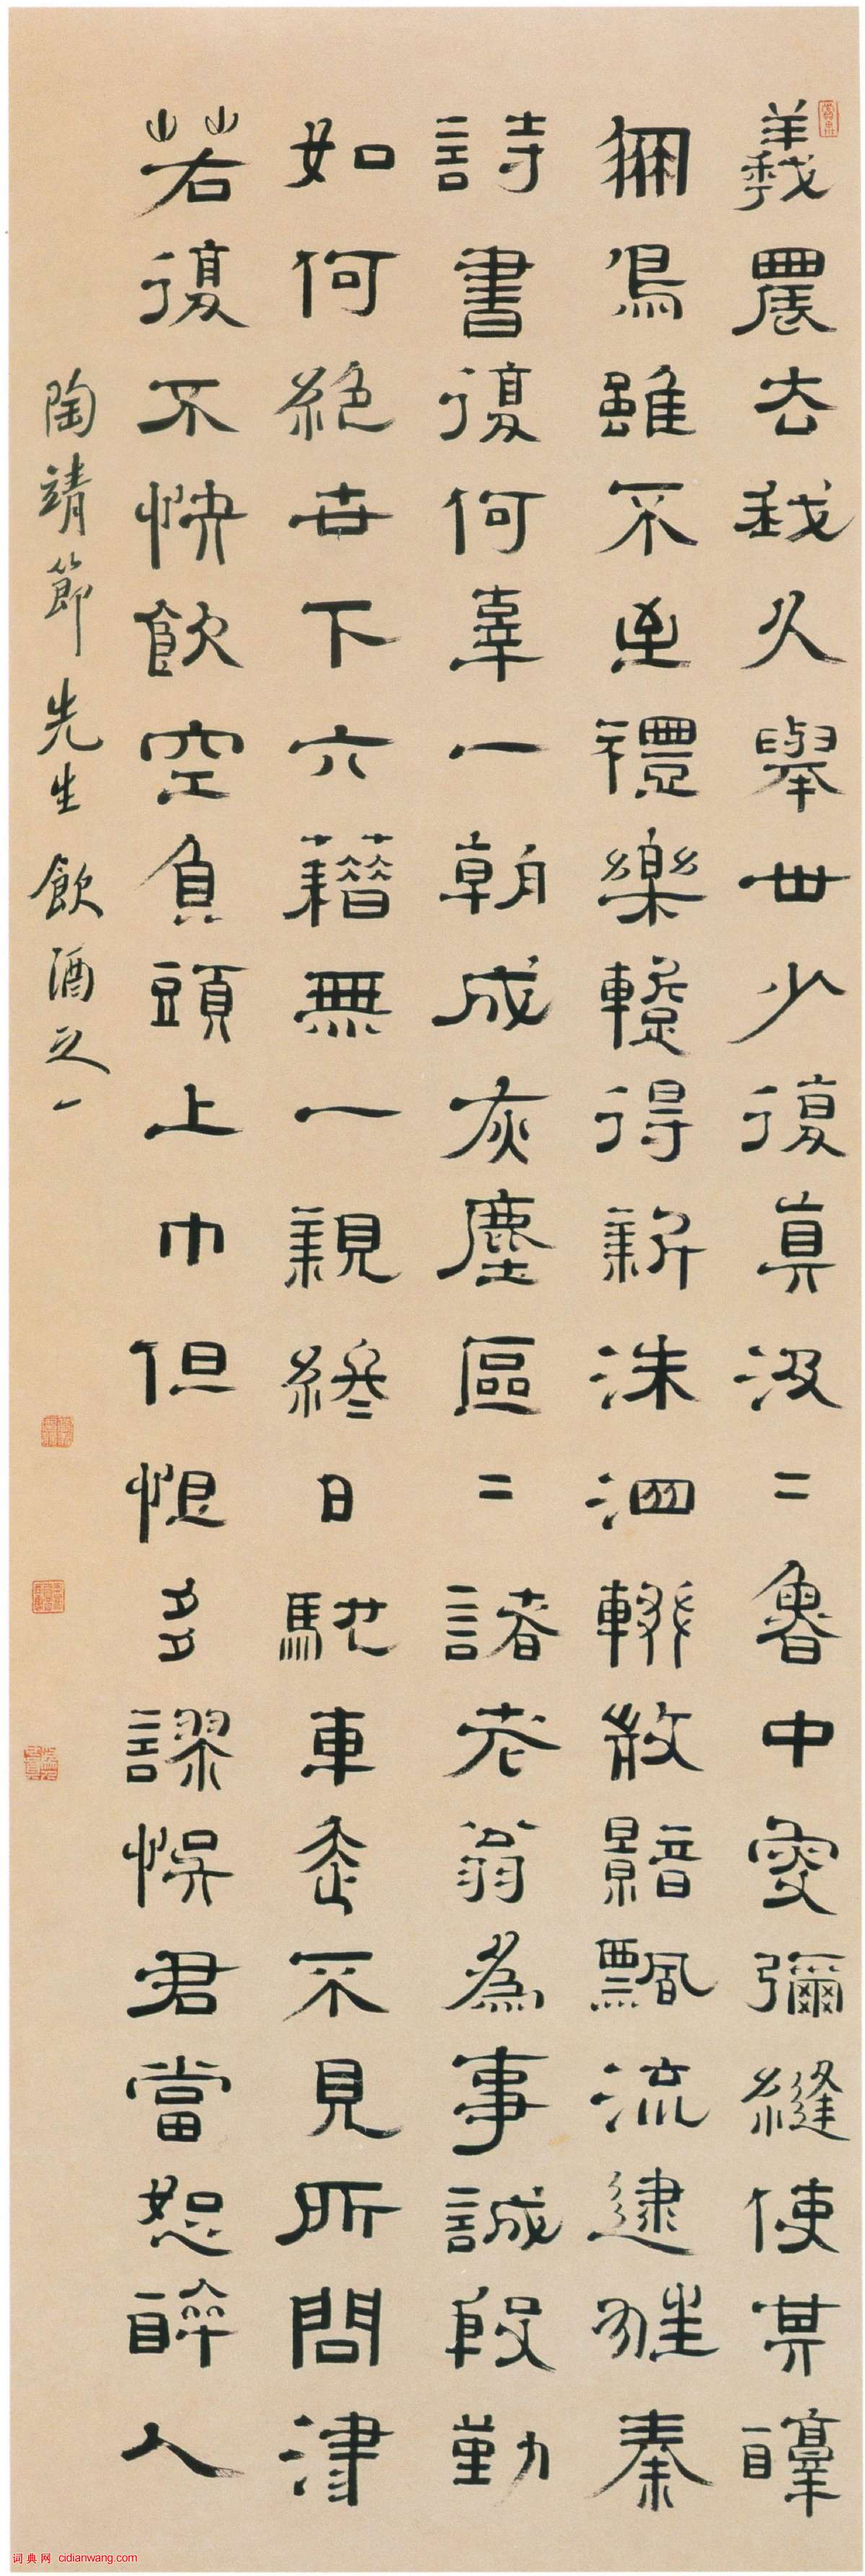 羲農去我久舉世少復真汲二魯中叟彌縫使其醇
鳳鳥雖不至禮樂暫得新洙泗輟微響飄流逮狂秦
詩書復何辜一朝成灰塵區二諸老翁為事誠殷勤
如何絕世下六藉無一親終日馳車走不見所問津
若復不快飲空負頭上巾但恨多謬悞君當恕醉人
陶靖節先生飲酒之一
词典网 cidianwang.com